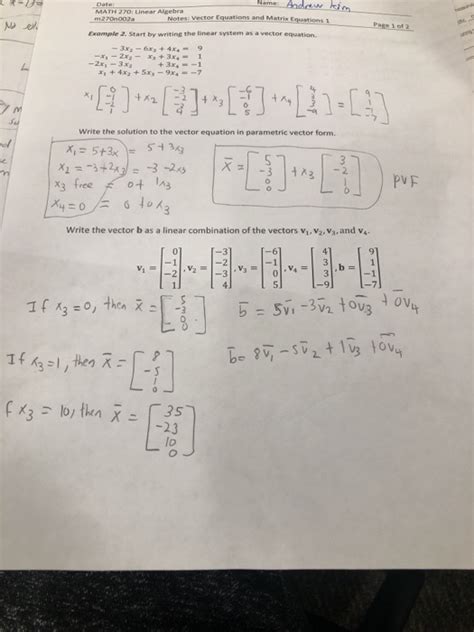 Date: Name: Andrew Kim
MATH 270: Linear Algebra
m270n002a Notes: Vector Equations and Matrix Equations 1 Page 1 of 2
Example 2. Start by writing the linear system as a vector equation.
− 3x₂ − 6x₃ + 4x₄ = 9
−x₁ − 2x₂ − x₃ + 3x₄ = 1
−2x₁ − 3x₂ + 3x₄ = −1
x₁ + 4x₂ + 5x₃ − 9x₄ = −7
x₁ [0 −1 −2 1] + x₂ [−3 −2 −3 4] + x₃ [−6 −1 0 5] + x₄ [4 3 3 −9] = [9 1 −1 −7]
Write the solution to the vector equation in parametric vector form.
x₁ = 5+3x = 5 + 3x₃
x₂ = −3+2x₃ = −3 −2x₃
x₃ free = 0 + 1x₃
x₄ = 0 = 0 + 0x₃
x̄ = [5 −3 0 0] + x₃ [3 −2 1 0] PVF
Write the vector b as a linear combination of the vectors v₁, v₂, v₃, and v₄.
v₁ = [0 −1 −2 1], v₂ = [−3 −2 −3 4], v₃ = [−6 −1 0 5], v₄ = [4 3 3 −9], b = [9 1 −1 −7]
If x₃=0, then x̄ = [5 −3 0 0] b̄ = 5v̄₁ −3v̄₂ +0v̄₃ +0v̄₄
If x₃=1, then x̄ = [8 −5 1 0] b̄= 8v̄₁ −5v̄₂ + 1v̄₃ +0v̄₄
f x₃ = 10, then x̄ = [35 −23 10 0]